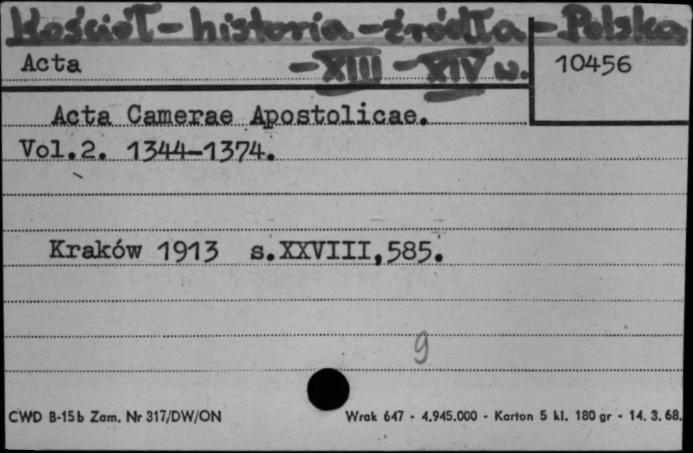 Kościoł - historia - źródła - Polska
- XIII - XIV w.
Acta
10456
Acta Camerae Apostolicae.
Vol.2. 1344-1374.
Kraków 1913 s.XXVIII,585.
9
CWD B-15b Zam. Nr 317/DW/ON
Wrak 647 - 4.945.000 - Karton 5 kl. 180 gr - 14. 3. 68.